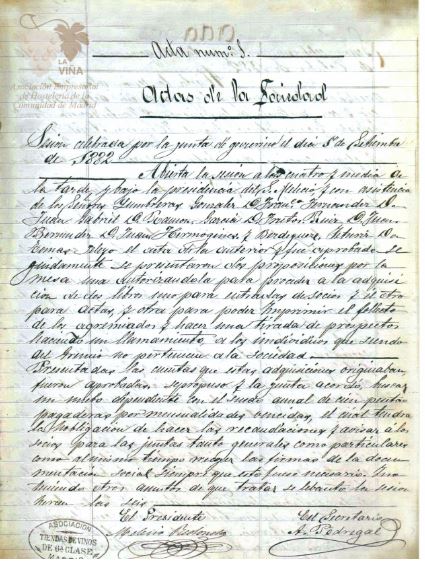 Acta num.º 1.
LA
VIÑA
Asociación Empresarial
de Hostelería de la
Comunidad de Madrid
Actas de la Sociedad
Sesion celebrada por la junta de el dia 5 de Setiembre
de 1882
Abierta la sesion a las cuatro y media de
la tarde, y bajo la presidencia del S. y con asistencia
de los Señores Gonzalez D. Franco Fernandez D.
Juan D. Ramon Garcia D. Ruiz D. Juan
D. y D.
Tomas leyo el acta de la anterior y fue aprobada se
guidamente se presentaron dos proposiciones por la
mesa una autorizandola para proceder a la adquisi
cion de dos libros uno para entradas de socios y el otro
para actas, y otra para poder imprimir el folleto
de los agremiados y hacer una tirada de prospectos
haciendo un llamamiento a los individuos que siendo
del Gremio no pertenecen a la Sociedad
Presentadas las cuentas que estas adquisiciones originaban
fueron aprobadas se propuso y la junta acordó, buscar
un dependiente con el sueldo anual de cien pesetas
pagaderas por mensualidades vencidas, el cual tendra
la obligacion de hacer las recaudaciones y avisar á los
socios para las juntas tanto generales como particulares
como al mismo tiempo recoger las firmas de la docu
mentacion social siempre que esto fuese necesario. No
habiendo otros asuntos de que tratar se levantó la sesion
las seis
El Presidente
El Secretario
A. Pedregal
ASOCIACIÓN
TIENDAS DE VINOS
DE 6ª CLASE
MADRID